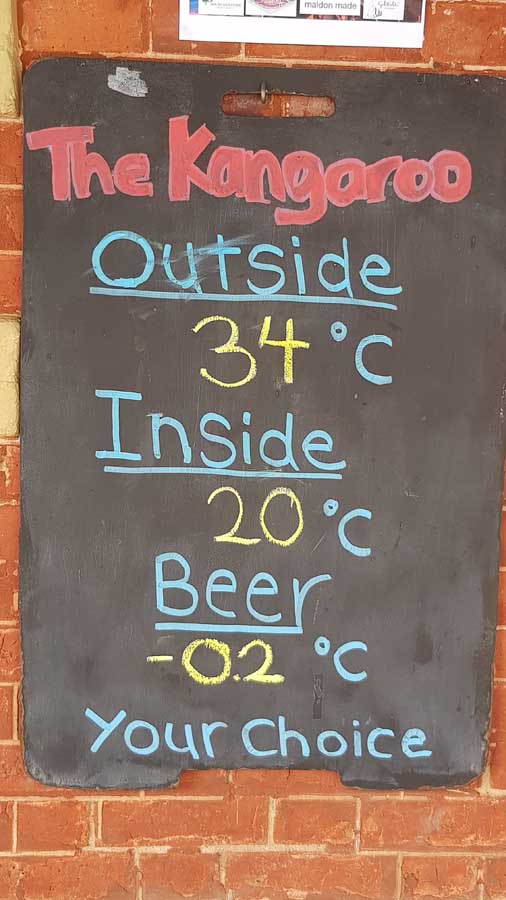 maldon made
The Kangaroo
Outside
34 °C
Inside
20 °C
Beer
-0.2 °C
Your Choice